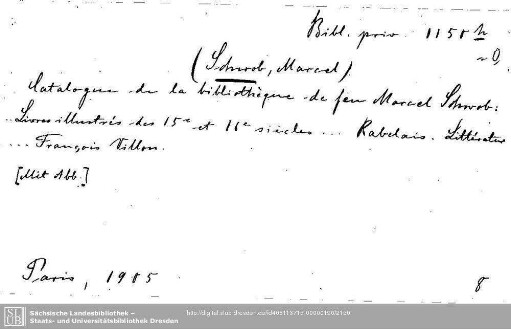 Bibl. priv. 1150 h
(Schwob, Marcel)
Catalogue de la bibliothèque de feu Marcel Schwob:
Livres illustrés des 15e et 16e siècles ... Rabelais. Littérature
... François Villon.
[Mit Abb.]
Paris, 1905 8
SLUB
Sächsische Landesbibliothek –
Staats- und Universitätsbibliothek Dresden